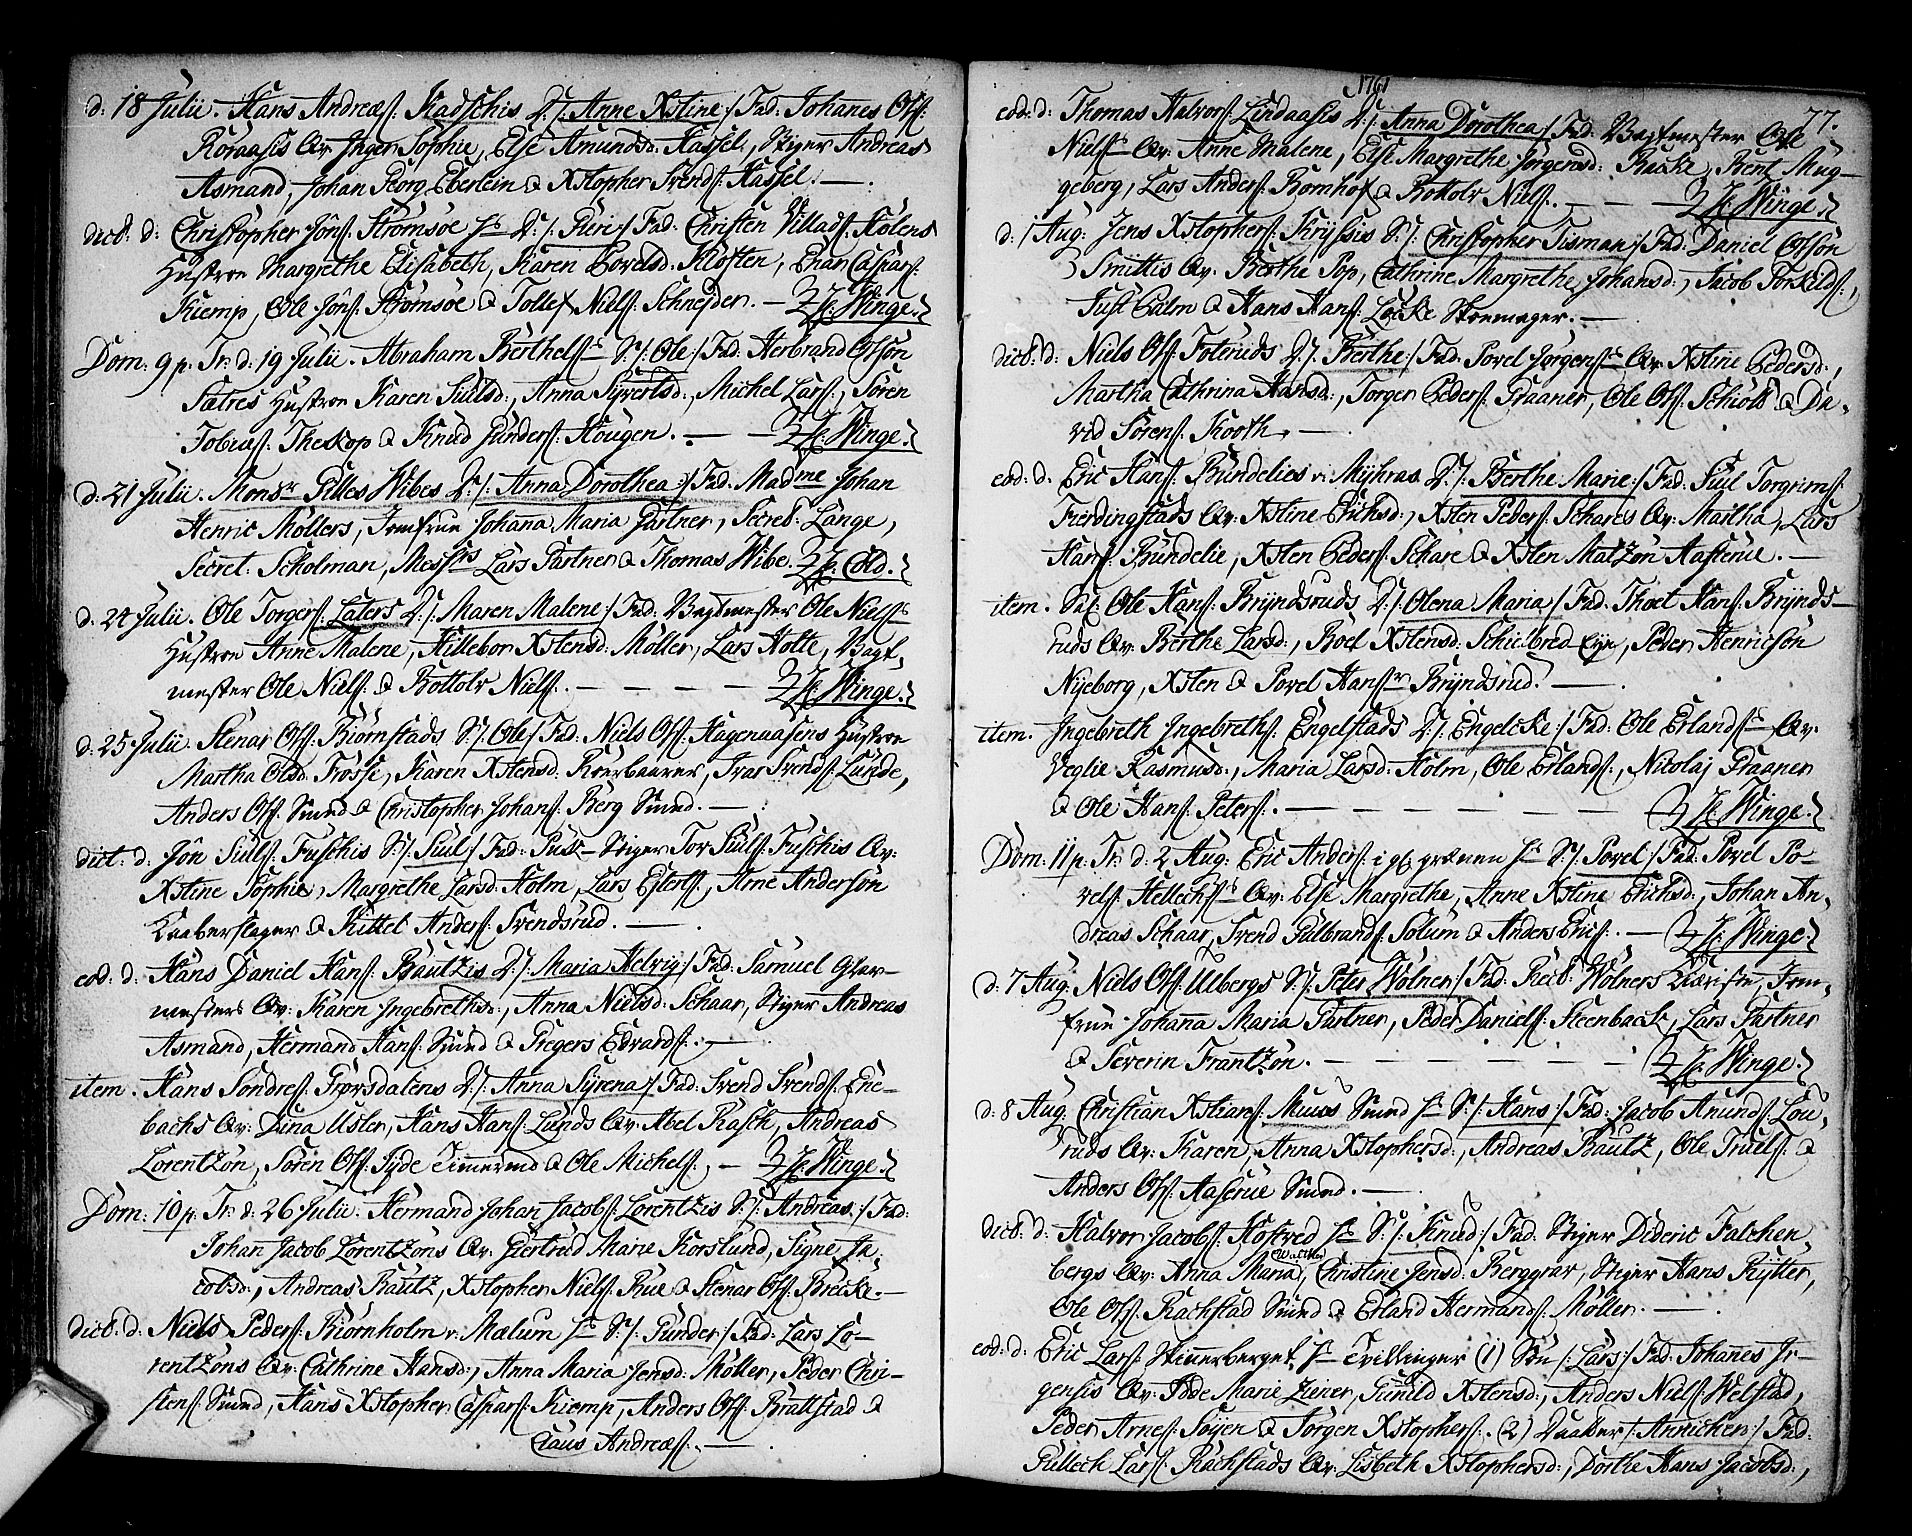 d. 18 Julii. Hans Andreæs: Kadschis D: /: Anne Xstine :/ Fad: Johanes Ols:
Röraasis Qv: Inger Sophie, Else Amundsd: Hassel, Stiger Andreas
Asmand, Johan Georg Eberlein & Xstopher Svends: Hassel. —
dict: d: Christopher Jöns: Strømsöe D: /: Siri :/ Fad: Christen Villads: Holens
Hustroe Margrethe Elisabeth, Karen Povelsd: Kloften, Enar Caspars:
Kiemp, Ole Jöns: Strömsöe & Tollef Niels: Schnejder. — H: Winge.
Dom: 9 p. Tr: d: 19 Julii. Abraham Berthels: S: /: Ole :/ Fad: Herbrand Olsön
Sætres Hustroe Karen Juulsd:, Anna Syvertsd:, Michel Lars:, Sören
Tobiæs: Theskop & Knud Gunders: Hougen. — H: Winge.
d. 21 Julii. Monsr Gilles Wibes D: /: Anna Dorothea :/ Fad: Madme Johan
Henric Möllers, Jomfrue Johana Maria Gärtner, Secret: Lange,
Secret: Scholman, Messrs Lars Gärtner & Thomas Wibe. H: Cold.
d. 24 Julii. Ole Torgers: Laters D: /: Maren Malene :/ Fad: Vagtmester Ole Niels:
Hustroe Anne Malene, Hillebor Xstensd: Möller, Lars Holte, Vagt-
mester Ole Niels: & Bottolv Niels: — — — H: Winge.
d. 25 Julii. Stenar Ols: Biörnstads S: /: Ole :/ Fad: Niels Ols: Hagenaasens Hustroe
Martha Olsd: Fosse, Karen Xstensd: Kierbaarer, Ivar Svends: Lunde,
Anders Ols: Smed & Christopher Johans: Berg Smed. —
dict: d: Jön Juuls: Fuschis S: /: Juul :/ Fad: Puk-Stiger Tor Juuls: Fuschis Qv:
Xstine Sophie, Margrethe Larsd: Holm, Lars Ejlerts:, Arne Andersön
Kaaberslager & Kittel Anders: Svendsrud. —
eod: d: Hans Daniel Hans: Bautzis D: /: Maria Helvig :/ Fad: Samuel Glar-
mesters Qv: Karen Ingebrethsd:, Anna Nielsd: Schaar, Stiger Andreas
Asmand, Hermand Hans: Smed & Gregers Edvards: —
item. Hans Söndres: Grørsdalens D: /: Anna Syrena :/ Fad: Svend Svends: Ene-
bachs Qv: Dina Usler, Hans Hans: Lunds Qv: Abel Rasch, Andreas
Lorentzön, Sören Ols: Syde Timermd & Ole Michels: — H: Winge.
Dom: 10 p. Tr: d: 26 Julii. Hermand Johan Jacobs: Lorentzis S: /: Andreas :/ Fad:
Johan Jacob Lorentzöns Qv: Giertrud Marie Korslund, Signe Ja-
cobsd:, Andreas Bautz, Xstopher Niels: Rue & Stenar Ols: Brecke. —
dict: d: Niels Peders: Biörnholm v. Mælum S: /: Gunder :/ Fad: Lars Lo-
rentzöns Qv: Cathrine Hansd:, Anna Maria Jensd: Möller, Peder Chri-
stens: Smed, Hans Xstopher Caspars: Kiemp, Anders Ols: Brattstad &
Claus Andreæs: —
1761
77.
eod: d: Thomas Halvors: Lindaasis D: /: Anna Dorothea :/ Fad: Vagtmester Ole
Niels: Qv: Anne Malene, Else Margrethe Jörgensd: Backe, Bent Mug-
geberg, Lars Anders: Bornhof & Bottolv Niels: — — H: Winge.
d. 1 Aug: Jens Xstophers: Krÿssis S: /: Christopher Tisman :/ Fad: Daniel Olsön
Smittis Qv: Berthe Pop, Cathrine Margrethe Johansd:, Jacob Torkilds:,
Just Palm & Hans Hans: Löcke Skoemager. —
dict: d: Niels Ols: Foteruds D: /: Berthe :/ Fad: Povel Jørgens: Qv: Xstine Pedersd:,
Martha Cathrina Hansd:, Torger Peders: Graaner, Ole Ols: Schiöls & Da-
vid Sörens: Kooth. —
eod: d. Eric Hans: Bundelies v. Mijhras D: /: Berthe Marie :/ Fad: Juul Torgrims:
Fierdingstads Qv: Xstine Erichsd:, Xsten Peders: Schares Qv: Martha, Lars
Hans: Bundelie, Xsten Peders: Schare & Xsten Matzön Aaserue. —
item. Sal: Ole Hans: Bryndsruds D: /: Olena Maria :/ Fad: Thoet Hans: Brynds-
ruds Qv: Berthe Larsd:, Boel Xstensd: Schiebred Eye, Peder Henricsön
Nyeborg, Xsten & Povel Hans: Bryndsrud. —
item. Ingebreth Ingebreths: Engelstads D: /: Engelcke :/ Fad: Ole Erlands: Qv:
Veglie Rasmusd:, Maria Larsd: Holm, Ole Erlands:, Nicolaj Graaner
& Ole Hans: Peters: — — — H: Winge.
Dom: 11 p. Tr: d: 2 Aug: Eric Anders: i gl: S: /: Povel :/ Fad: Povel Po-
vels: Hellechs: Qv: Else Margrethe, Anne Xstine Erichsd:, Johan An-
dreas Schaar, Svend Gulbrands: Solum & Anders Erics: — H: Winge
d. 7 Aug: Niels Ols: Ulbergs S: /: Peter Wölner :/ Fad: Wölners Kæriste, Jom-
frue Johana Maria Gärtner, Peder Daniels: Steenback, Lars Gärtner
& Severin Frantzön. — — — H: Winge.
d: 8 Aug: Christian Xstians: Muus Smed S: /: Hans :/ Fad: Jacob Amunds: Lou-
ruds Qv: Karen, Anna Xstophersd:, Andreas Bautz, Ole Truels: &
Anders Ols: Aaserue Smed. —
dict: d: Halvor Jacobs: Hofsred S: /: Knud :/ Fad: Stiger Dideric Falchen-
bergs Qv: Anna Maria, Christine Jensd: Berggrav, Stiger Hans Rytter,
Ole Ols: Rachstad Smed & Erland Hermands: Möller. —
eod: d: Eric Lars: Skinerberget Tvillinger (1) Sön /: Lars :/ Fad: Johanes Jr-
gensis Qv: Ide Marie Ziener, Gunild Xstensd:, Anders Niels: Welstad,
Peder Arnes: Soyen & Jörgen Xstophers: (2) Daatter /: Annichen :/ Fad:
Gullech Lars: Rachstads Qv: Lisbeth Xstophersd:, Dorthe Hans Jacobsd:,